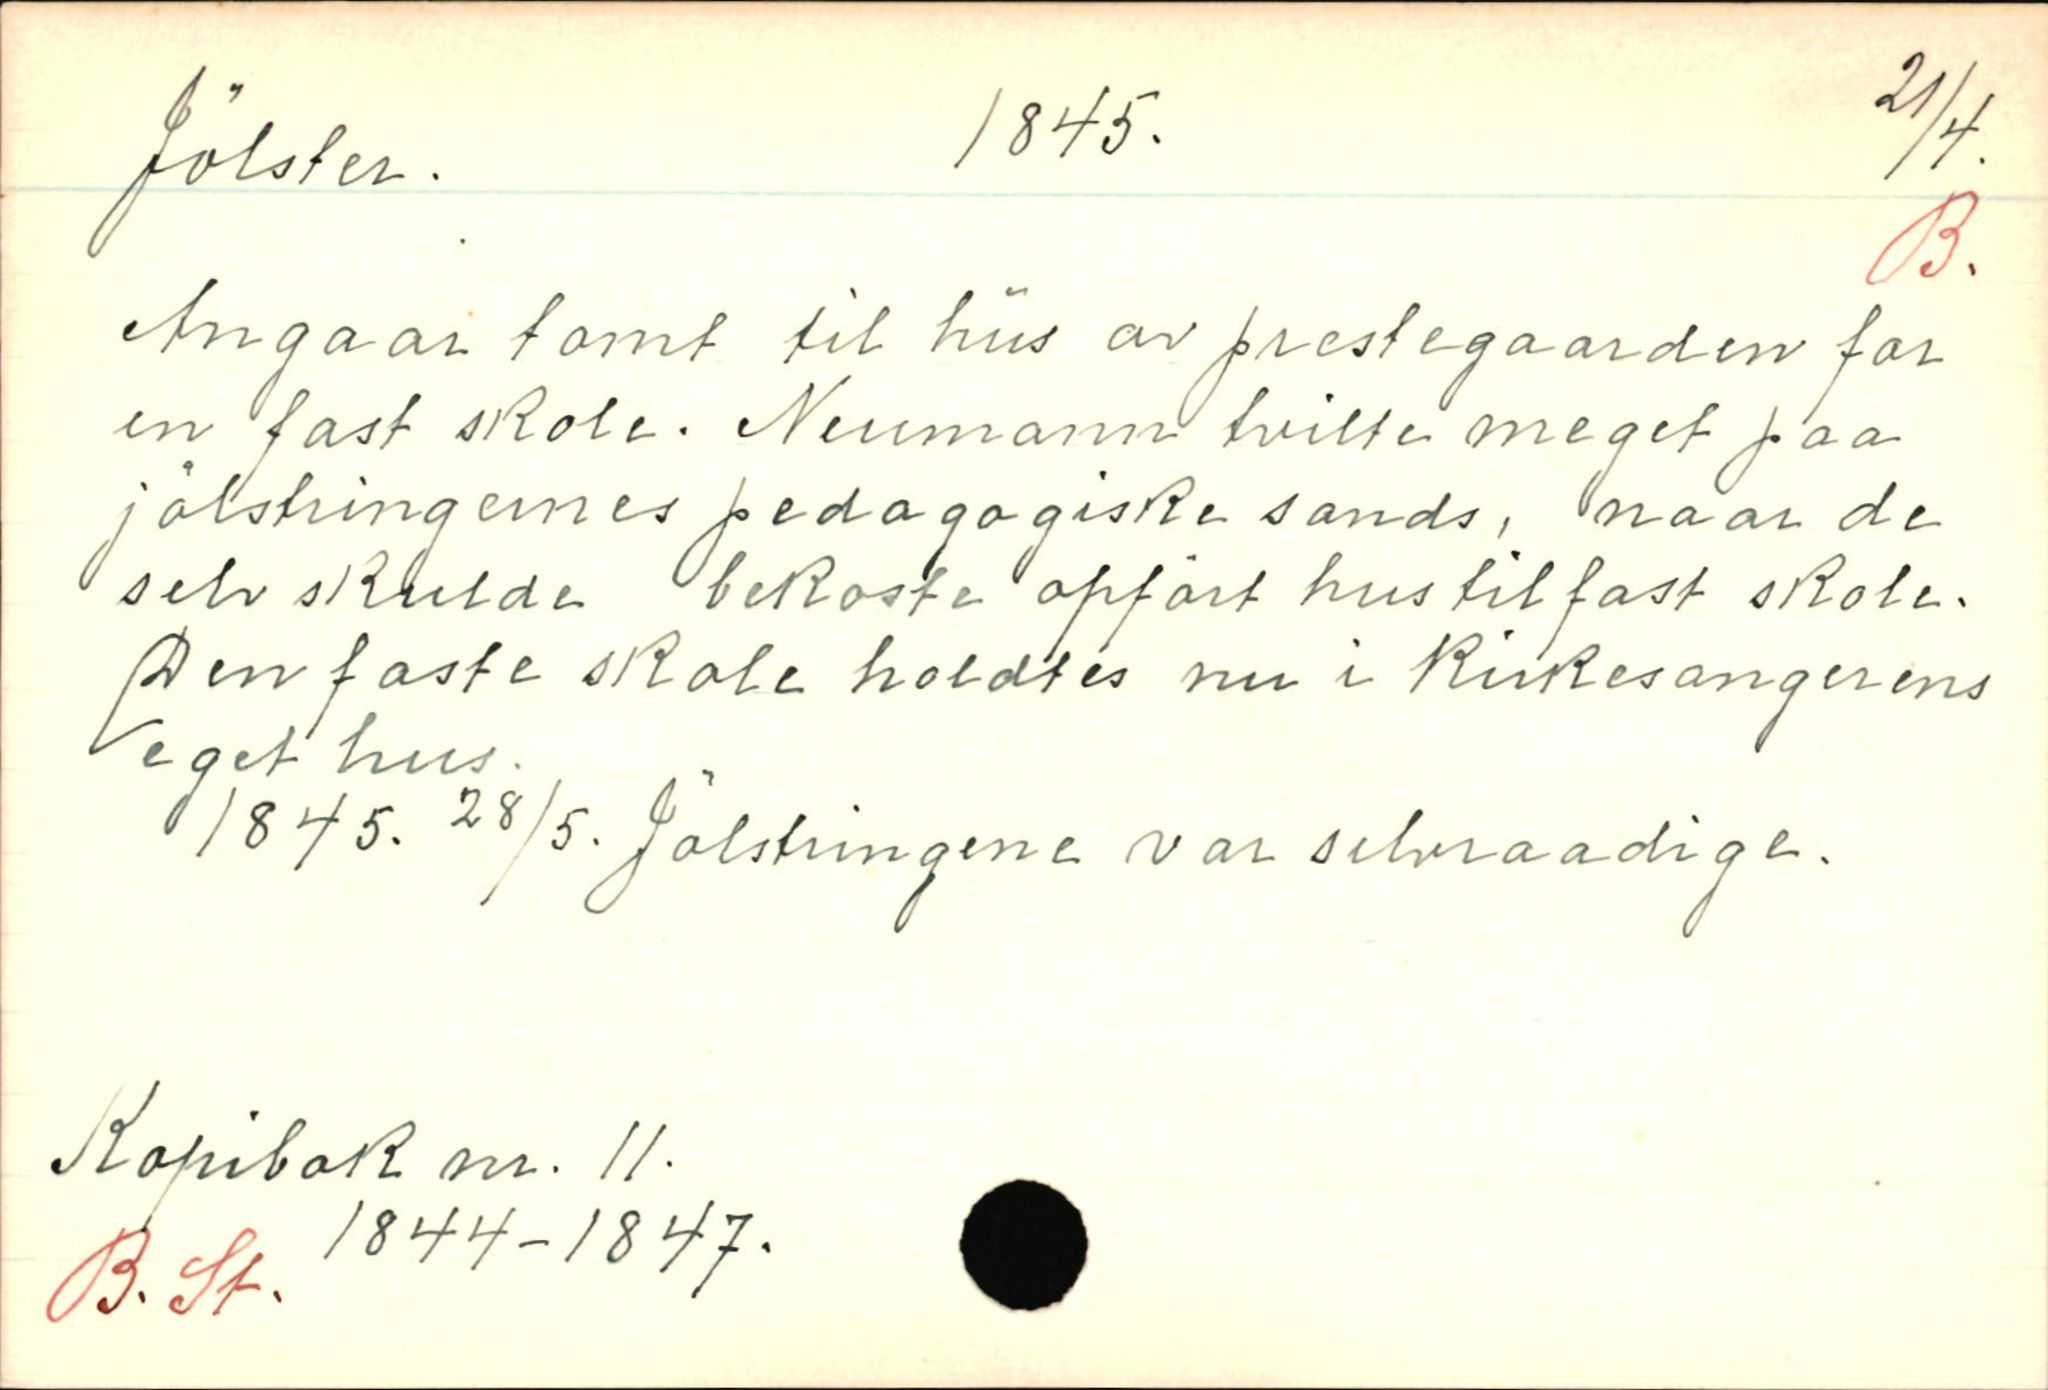 Jölster. 1845. 21/4.
B.
Angaar tomt til hüs av prestegaarden for
en fast skole. Neumann tvilte meget paa
jölstringernes pedagogiske sands, naar de
selv skulde bekoste opfört hus til fast skole.
Den faste skole holdtes nu i kirkesangerens
eget hus.
1845. 28/5. Jölstringene var selvraadige.
Kopibok nr. 11.
1844-1847.
B. St.